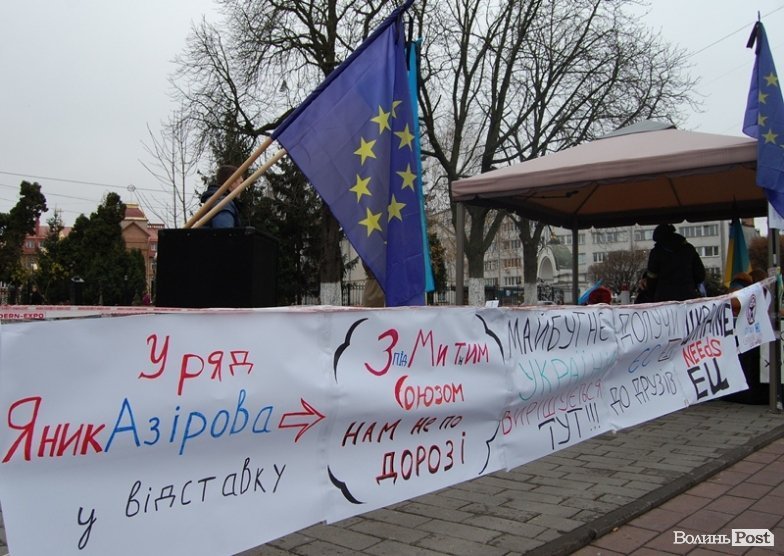 DERN-EXPO
Уряд
ЯникАзірова
у відставку
ЗпідМитним
Союзом
НАМ не по
ДОРОЗІ
МАЙБУТНЄ
УКРАЇНИ
ВИРІШУЄТЬСЯ
ТУТ!!!
ДО ДРУЗІВ
UKRAINE
NEEDS
EU
ВолиньPost